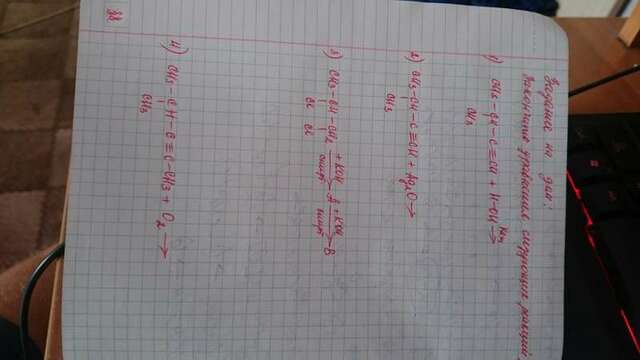 Задание на дом:
Закончите уравнения следующих реакций
1) CH3-CH-C≡CH + H-OH Hg→
CH3
2) CH3-CH-C≡CH + Ag2O→
CH3
3) CH3-CH-CH2 +KOH спирт→ A +KOH спирт→ B
Cl Cl
4) CH3-CH-C≡C-CH3 + O2→
CH3